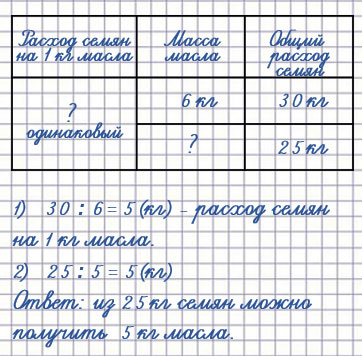 Расход семян
на 1 кг масла
Масса
масла
Общий
расход
семян
?
одинаковый
6 кг
30 кг
?
25 кг
1) 30 : 6 = 5 (кг) – расход семян
на 1 кг масла.
2) 25 : 5 = 5 (кг)
Ответ: из 25 кг семян можно
получить 5 кг масла.